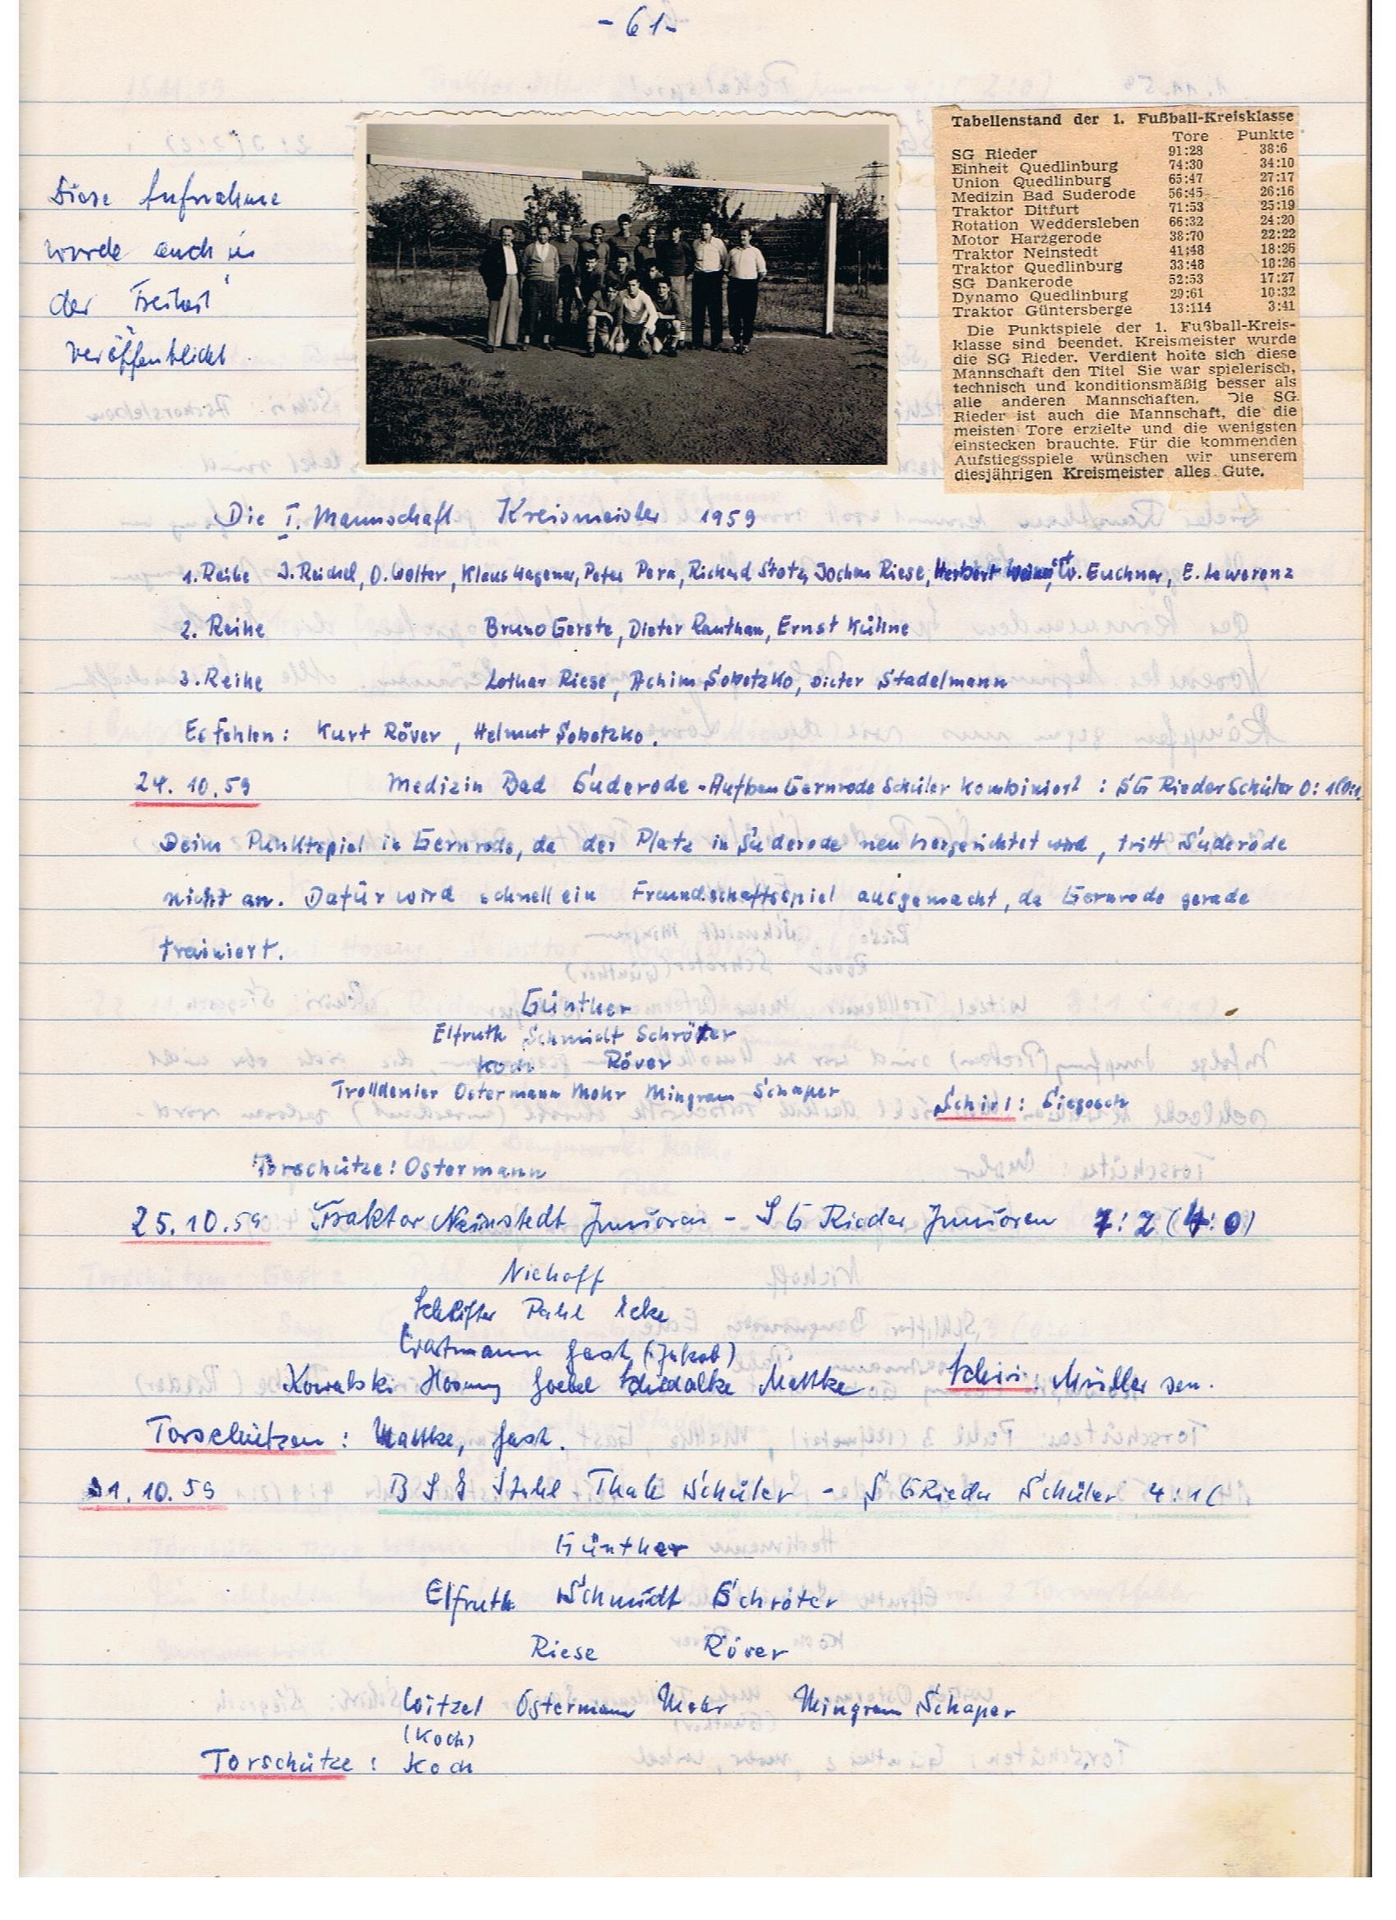 - 61 -
Diese Aufnahme
wurde auch in
der "Freiheit"
veröffentlicht.
Tabellenstand der 1. Fußball-Kreisklasse
Tore Punkte
SG Rieder 91:28 38:6
Einheit Quedlinburg 74:30 34:10
Union Quedlinburg 65:47 27:17
Medizin Bad Suderode 56:45 26:16
Traktor Ditfurt 71:53 25:19
Rotation Weddersleben 66:32 24:20
Motor Harzgerode 38:70 22:22
Traktor Neinstedt 41:48 18:26
Traktor Quedlinburg 33:48 18:26
SG Dankerode 52:53 17:27
Dynamo Quedlinburg 29:61 10:32
Traktor Güntersberge 13:114 3:41
Die Punktspiele der 1. Fußball-Kreis-
klasse sind beendet. Kreismeister wurde
die SG Rieder. Verdient holte sich diese
Mannschaft den Titel Sie war spielerisch,
technisch und konditionsmäßig besser als
alle anderen Mannschaften. Die SG
Rieder ist auch die Mannschaft, die die
meisten Tore erzielte und die wenigsten
einstecken brauchte. Für die kommenden
Aufstiegsspiele wünschen wir unserem
diesjährigen Kreismeister alles Gute.
Die I. Mannschaft Kreismeister 1959
1. Reihe J. Reichel, O. Wolter, Klaus Wagener, Peter Pera, Richard Stotz, Jochen Riese, Herbert W. Euchner, E. Lewerenz
2. Reihe Bruno Gerste, Dieter Rauthan, Ernst Kühne
3. Reihe Lothar Riese, Achim Sobotzko, Dieter Stadelmann
Es fehlen: Kurt Röver, Helmut Sobotzko.
24. 10. 59 Medizin Bad Suderode - Aufbau Gernrode Schüler kombiniert : SG Rieder Schüler 0:1(0:1)
Beim Punktspiel in Gernrode, da der Platz in Suderode neu hergerichtet wird, tritt Suderode
nicht an. Dafür wird schnell ein Freundschaftsspiel ausgemacht, da Gernrode gerade
trainiert.
Günther
Elfruth Schmidt Schröter
Koch Röver
Trolldenier Ostermann Mohr Mingram Schaper
Schiri: Siegosch
Torschütze: Ostermann
25. 10. 59 Traktor Neinstedt Junioren - SG Rieder Junioren 7:2 (4:0)
Niehoff
Schlifter Pahl Ecke
Erstmann Gast (Jakob)
Kowalski Hosung Goebel Schidalke Mattke
Schiri: Müller sen.
Torschützen: Mattke, Gast.
31. 10. 59 BSG Stahl Thale Schüler - SG Rieder Schüler 4:1 (
Günther
Elfruth Schmidt Schröter
Riese Röver
Witzel Ostermann Mohr Mingram Schaper
(Koch)
Torschütze: Koch